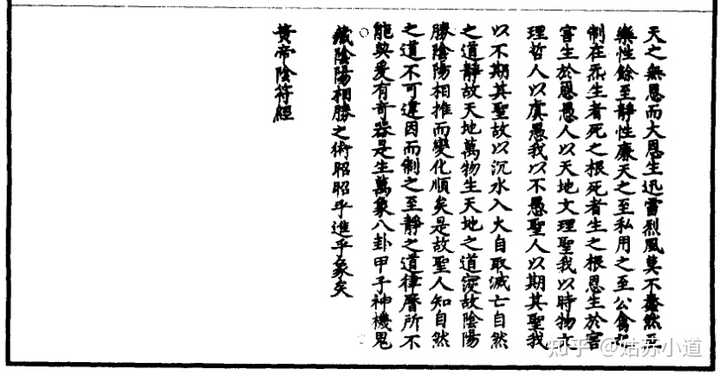 天之無恩而大恩生迅雷烈風莫不蠢然至
樂性餘至靜性廉天之至私用之至公禽之
制在炁生者死之根死者生之根恩生於害
害生於恩愚人以天地文理聖我以時物文
理哲人以虞愚我以不愚聖人以期其聖我
以不期其聖故以沉水入大自取滅亡自然
之道靜故天地萬物生天地之道寖故陰陽
勝陰陽相推而變化順矣是故聖人知自然
之道不可違因而制之至靜之道律曆所不
能契爰有奇器是生萬象八卦甲子神機鬼
藏陰陽相勝之術昭昭乎進乎象矣
黃帝陰符經
知乎 @姑苏小道